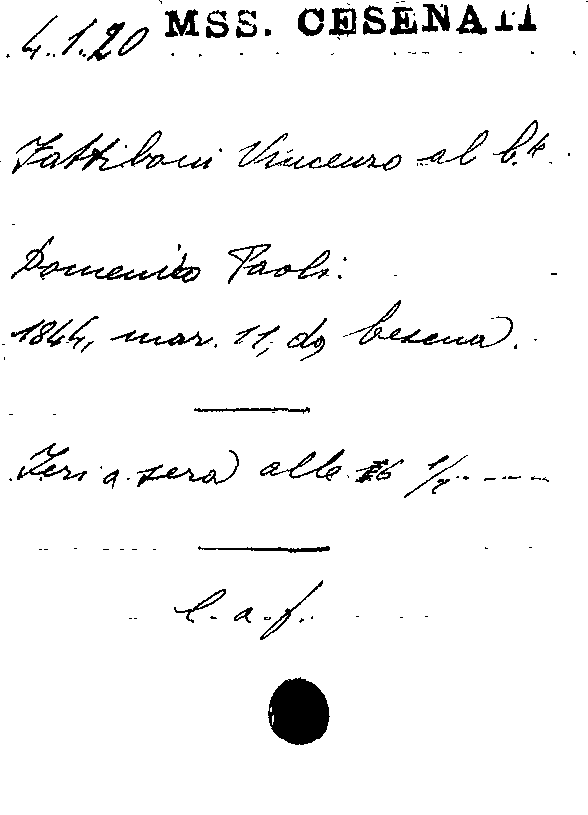 4.1.20 MSS. CESENATI
Fattiboni Vincenzo al b.te
Domenico Paoli.
1844, mar. 11, da Cesena.
Ieri a sera alle 6 1/2 ----
l. a. f.